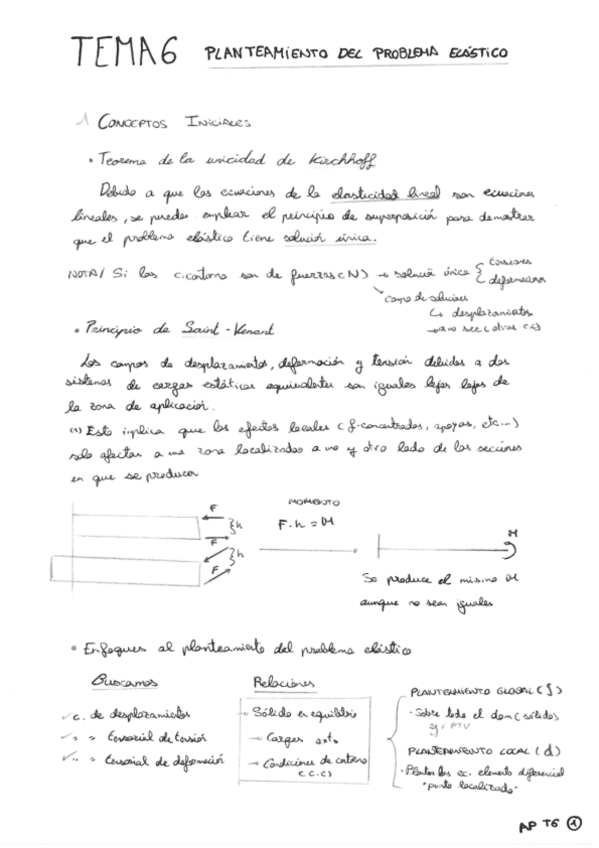 TEMA 6 PLANTEAMIENTO DEL PROBLEMA ELÁSTICO
1 CONCEPTOS INICIALES
• Teorema de la unicidad de Kirchhoff
Debido a que las ecuaciones de la elasticidad lineal son ecuaciones
lineales, se puede emplear el principio de superposición para demostrar
que el problema elástico tiene solución única.
NOTA/ Si las c.contorno son de fuerzas (N) → solución única { tensiones
deformaciones
campo de soluciones
↳ desplazamientos
• Principio de Saint-Venant
Los campos de desplazamientos, deformación y tensión debidos a dos
sistemas de cargas estáticas equivalentes son iguales lejos lejos de
la zona de aplicación.
(*) Esto implica que los efectos locales (f. concentradas, apoyos, etc...)
solo afectan a una zona localizada a uno y otro lado de las secciones
en que se producen
F
h
F
h
F
MOMENTO
F.h = M
M
Se produce el mismo M
aunque no sean iguales
• Enfoques al planteamiento del problema elástico
Buscamos
✓ c. de desplazamientos
✓ " " tensorial de tensión
✓ " " tensorial de deformación
Relaciones
→ Sólido en equilibrio
→ Cargas ext.
→ Condiciones de contorno
(c.c)
PLANTEAMIENTO GLOBAL (∫)
· Sobre todo el dom (sólido)
PTV
PLANTEAMIENTO LOCAL (d)
· Plantea las ec. elemento diferencial
"punto localizado"
AP T6 1